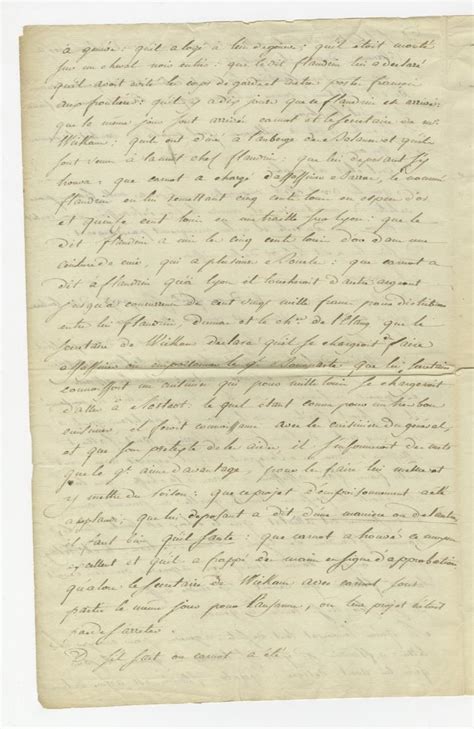 à genève: qu'il a logé à lui dejeuné: qu'il était monté
sur un cheval noir entier: que le dit flandrin lui a déclaré
qu'il avait évité les corps de garde et autres postes français
aux frontieres: qu'il y a dix jours que ce flandrin est arrivé:
que le meme jour sont arrivés carnot et le secretaire de mr
Wickam: qu'ils ont diné à l'auberge de Balance et qu'ils
sont venus à la nuit chez flandrin: que lui deposant s'y
trouva: que carnot a chargé d'assassiner le
flandrin en lui remettant cinq cents louis en espèces d'or
et quinze cent louis en une traitte sur Lyon: que le
dit flandrin a mis les cinq cents louis d'or dans une
ceinture de cuir, qui a plusieurs Boucles: que carnot a
dit à flandrin qu'à Lyon il toucherait d'autre argent
jusqu'à concurrence de cent vingt mille francs pour distribution
entre lui flandrin, Dumas et le chr. de l'Etang que le
secretaire de Wickam declara qu'il se chargeait de faire
assassiner ou empoisonner le gl. Bonaparte, que les secretaire
connaissait un cuisinier qui pour mille louis se chargerait
d'aller à Rastadt: lequel étant connu pour un tres bon
cuisinier il ferait connaissance avec le cuisinier du general,
et que son pretexte de les aider, il s'informerait des mets
que le gl. aime d'avantage, pour les faire lui meme et
y mettre du poison: que ce projet d'empoisonnement a été
applaudi: que lui deposant a dit d'une maniere ou de l'autre,
il faut bien qu'il saute: que carnot a trouvé ce moyen
excellent et qu'il a frappé des mains en signe d'approbation
qu'alors le secretaire de Wickam avec carnot sont
partis le meme jour pour Lausanne, ou leur projet était
pas de s'arreter.
D. s'il sait ou carnot a été